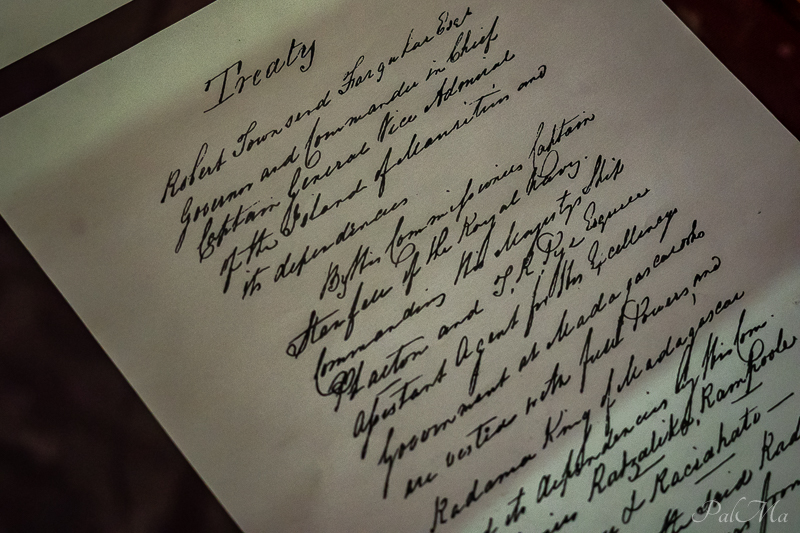 Treaty
Robert Townsend Farquhar Esqr
Governor and Commander in Chief
Captain General Vice Admiral
of the Island of Mauritius and
its dependencies
By His Commissioners Captain
Stanfell of the Royal Navy.
Commanding His Majesty's Ship
Phaeton and T. R. Pye Esquire
Assistant Agent for His Excellency's
Government at Madagascar who
are vested with full Powers, and
Radama King of Madagascar
its dependencies by His Com.
Ratzalika, Rampoole
& Racidhato —
the said Rad
PalMa